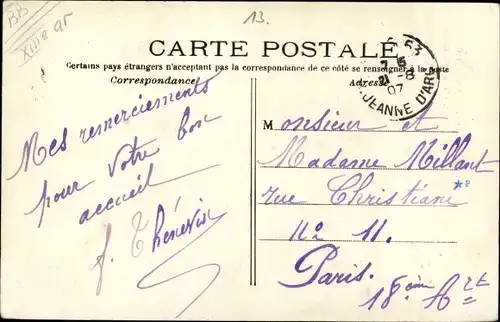 BB
XIIIe ar
13.
CARTE POSTALE
Certains pays étrangers n'acceptant pas la correspondance de ce côté se renseigner à la poste
Correspondance
Adresse
53
7 15
21 -8
07
JEANNE D'ARC
Mes remerciements
pour votre bon
accueil
J. Thénevin
Monsieur et
Madame Millant
rue Christiani
No 11.
Paris.
18ème Art